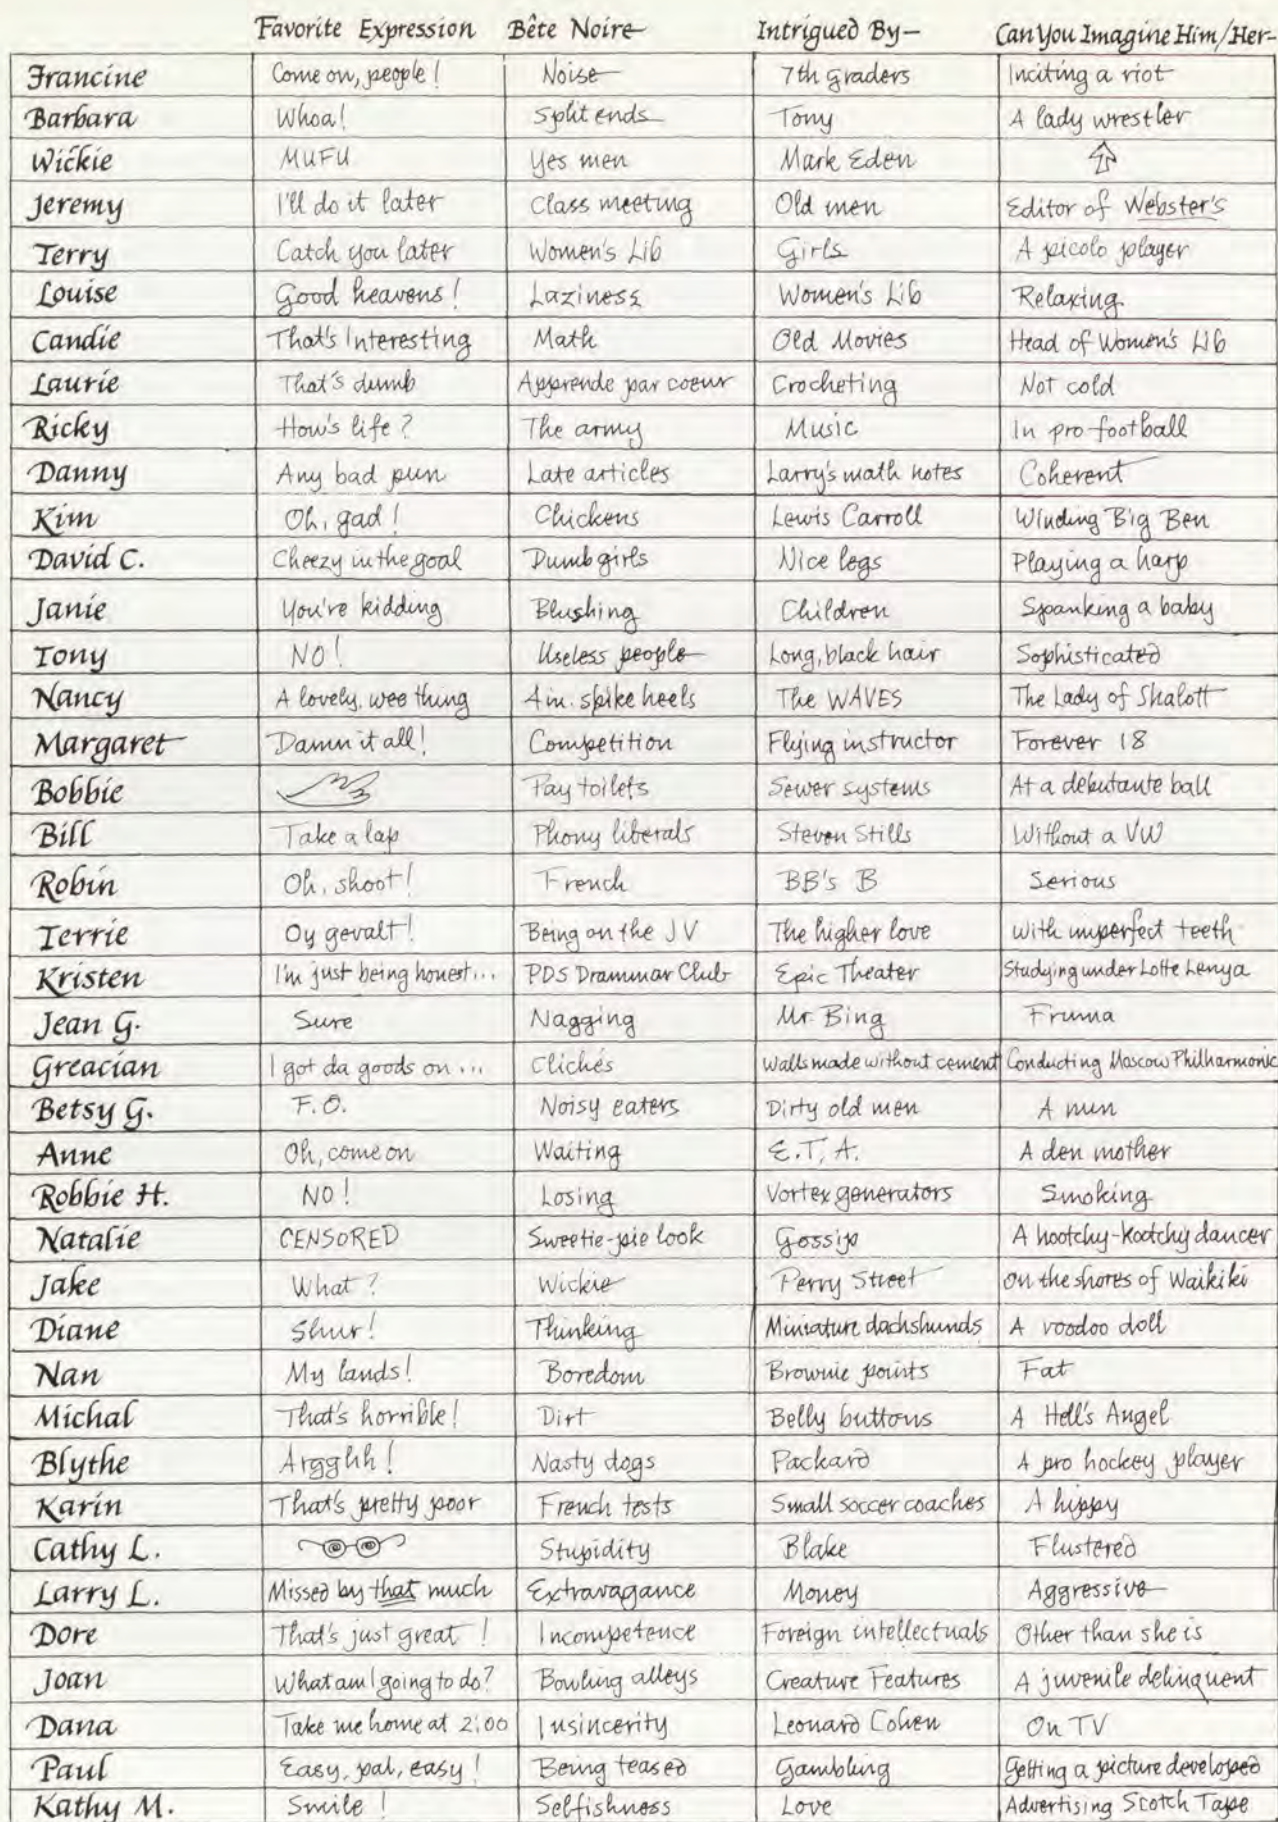 Favorite Expression Bête Noire Intrigued By— Can You Imagine Him/Her—
Francine Come on, people! Noise 7th graders Inciting a riot
Barbara Whoa! Split ends Tony A lady wrestler
Wickie MUFU Yes men Mark Eden
Jeremy I'll do it later Class meeting Old men Editor of Webster's
Terry Catch you later Women's Lib Girls A picolo player
Louise Good heavens! Laziness Women's Lib Relaxing
Candie That's Interesting Math Old Movies Head of Women's Lib
Laurie That's dumb Apprende par coeur Crocheting Not cold
Ricky How's life? The army Music In pro football
Danny Any bad pun Late articles Larry's math notes Coherent
Kim Oh, gad! Chickens Lewis Carroll Winding Big Ben
David C. Cheezy in the goal Dumb girls Nice legs Playing a harp
Janie You're kidding Blushing Children Spanking a baby
Tony NO! Useless people Long, black hair Sophisticated
Nancy A lovely, wee thing 4 in. spike heels The WAVES The Lady of Shalott
Margaret Damn it all! Competition Flying instructor Forever 18
Bobbie Pay toilets Sewer systems At a debutante ball
Bill Take a lap Phony liberals Steven Stills Without a VW
Robin Oh, shoot! French BB's B Serious
Terrie Oy gevalt! Being on the JV The higher love With imperfect teeth
Kristen I'm just being honest... PDS Drammar Club Epic Theater Studying under Lotte Lenya
Jean G. Sure Nagging Mr. Bing Fruma
Greacian I got da goods on ... Clichés Walls made without cement Conducting Moscow Philharmonic
Betsy G. F.O. Noisy eaters Dirty old men A nun
Anne Oh, come on Waiting E.T.A. A den mother
Robbie H. NO! Losing Vortex generators Smoking
Natalie CENSORED Sweetie-pie look Gossip A hootchy-kootchy dancer
Jake What? Wickie Perry Street On the shores of Waikiki
Diane Shur! Thinking Miniature dachshunds A voodoo doll
Nan My lands! Boredom Brownie points Fat
Michal That's horrible! Dirt Belly buttons A Hell's Angel
Blythe Argghh! Nasty dogs Packard A pro hockey player
Karin That's pretty poor French tests Small soccer coaches A hippy
Cathy L. Stupidity Blake Flustered
Larry L. Missed by that much Extravagance Money Aggressive
Dore That's just great! Incompetence Foreign intellectuals Other than she is
Joan What am I going to do? Bowling alleys Creature Features A juvenile delinquent
Dana Take me home at 2:00 Insincerity Leonard Cohen On TV
Paul Easy, pal, easy! Being teased Gambling Getting a picture developed
Kathy M. Smile! Selfishness Love Advertising Scotch Tape